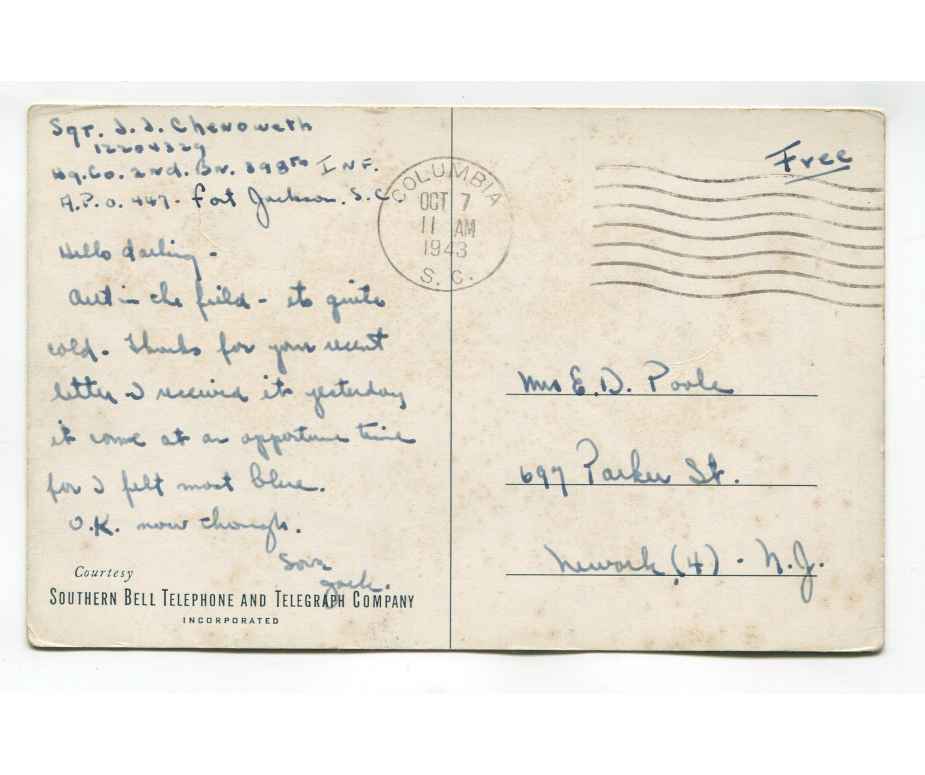 Sgt. J. J. Chenoweth
12204329
Hq. Co. 2nd. Bn. 398th INF.
A.P.O. 447. Fort Jackson, S.C.
Hello darling -
Out in the field - its quite
cold. Thanks for your recent
letter - I received it yesterday
it come at an opportune time
for I felt most blue.
O.K. now though.
Love
Jack.
Courtesy
SOUTHERN BELL TELEPHONE AND TELEGRAPH COMPANY
INCORPORATED
COLUMBIA
OCT 7
11 AM
1943
S. C.
Free
Mrs E. D. Poole
697 Parker St.
Newark (4) - N.J.